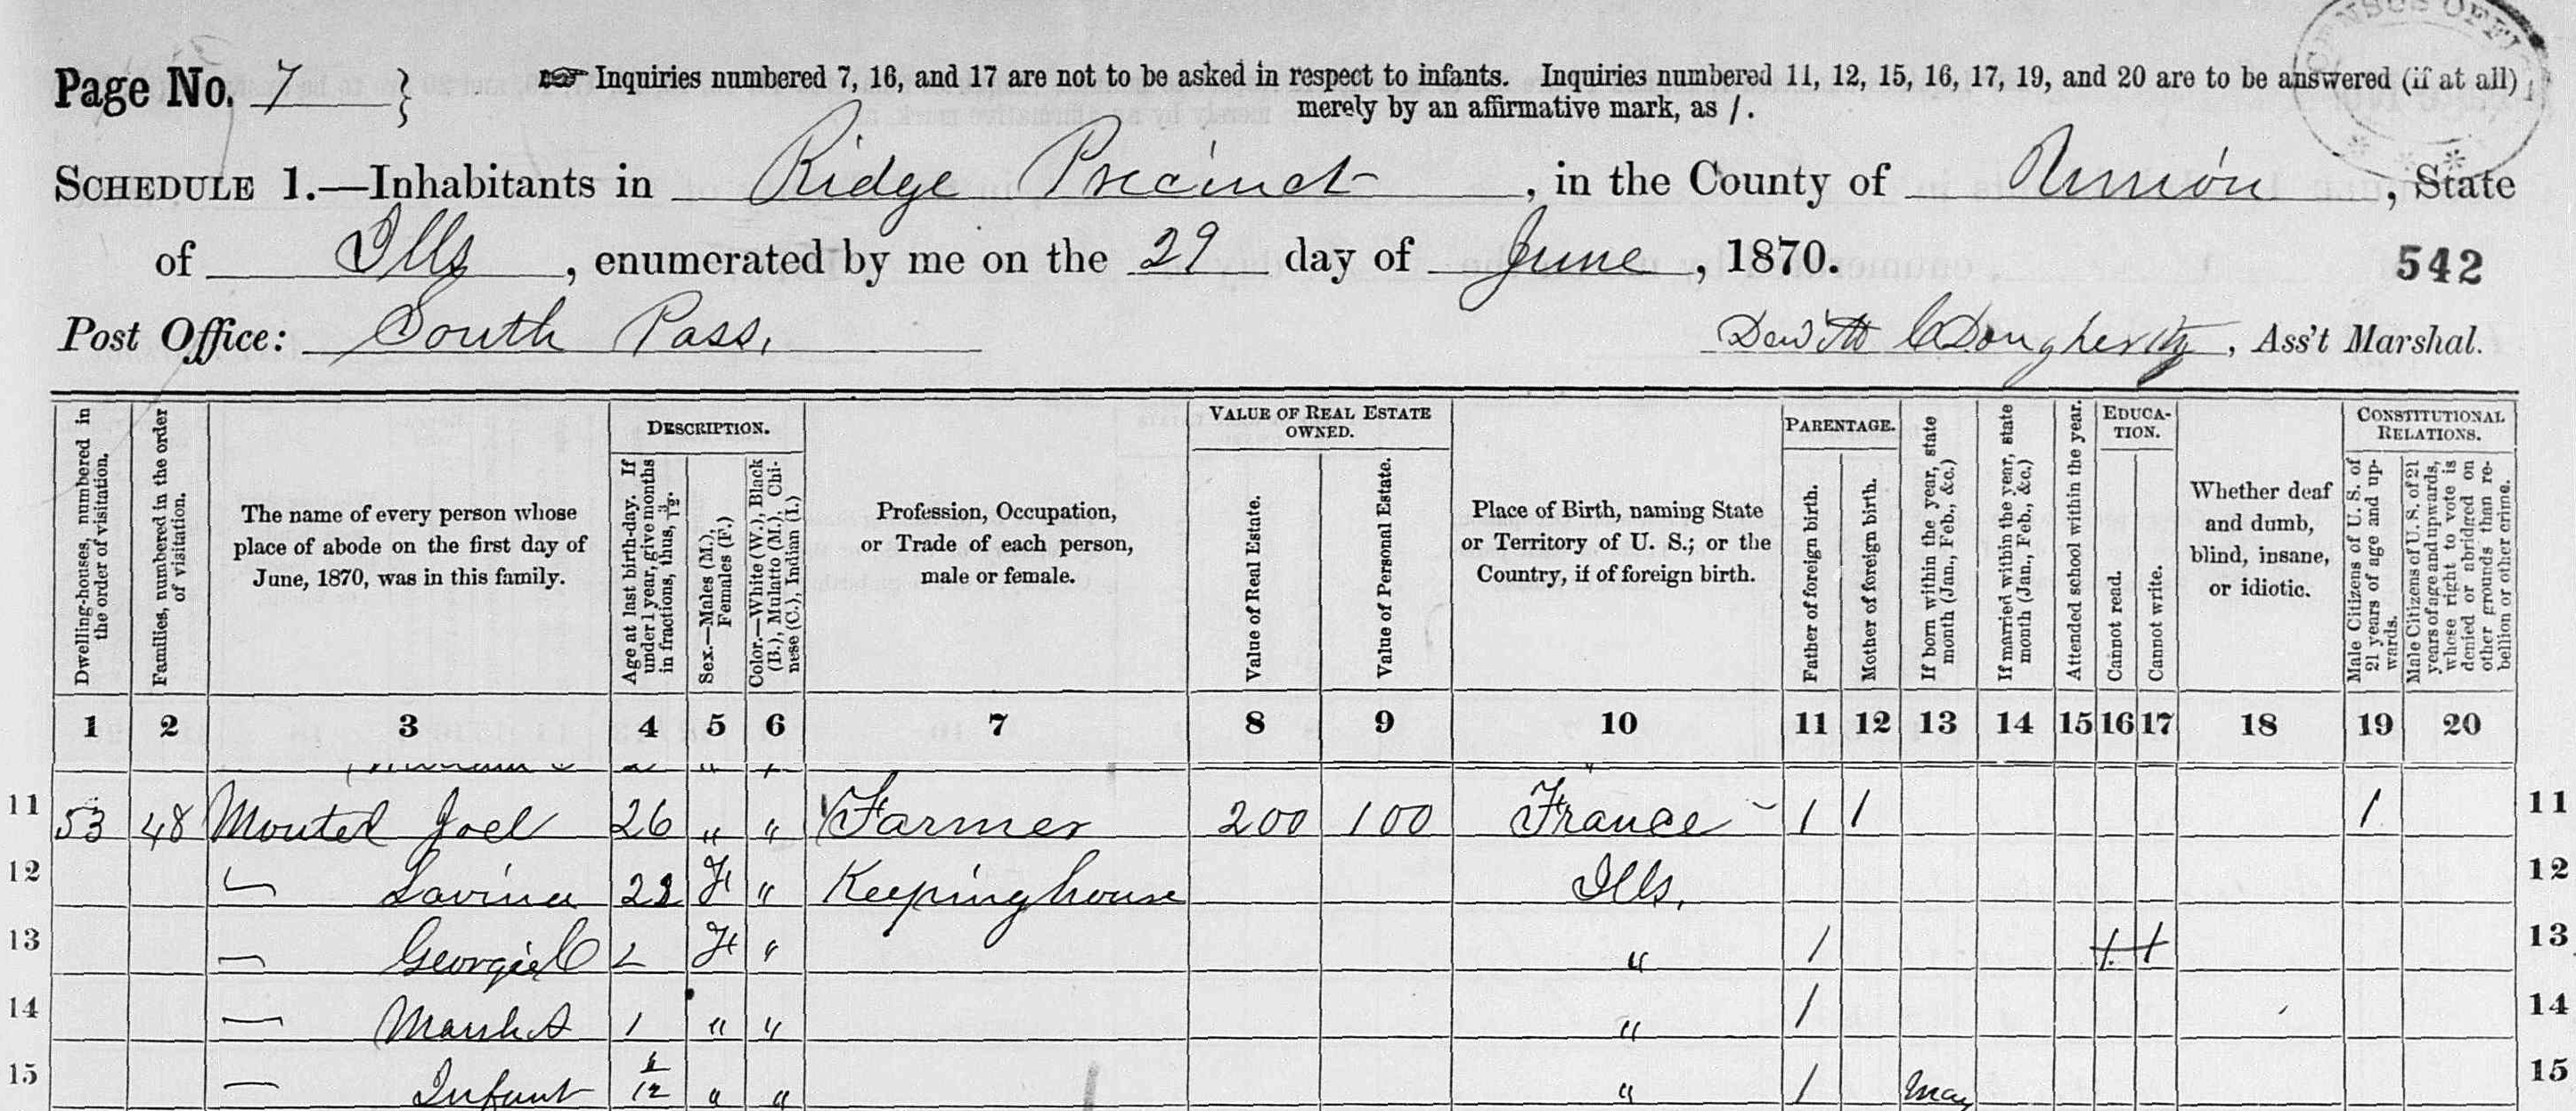 CENSUS OFFI
Page No. 7 } ☞ Inquiries numbered 7, 16, and 17 are not to be asked in respect to infants. Inquiries numbered 11, 12, 15, 16, 17, 19, and 20 are to be answered (if at all)
merely by an affirmative mark, as /.
SCHEDULE 1.—Inhabitants in Ridge Precinct, in the County of Union, State
of Ills, enumerated by me on the 29 day of June, 1870.
542
Post Office: South Pass,
Dewitt C Dougherty, Ass't Marshal.
Dwelling-houses, numbered in the order of visitation.
Families, numbered in the order of visitation.
The name of every person whose
place of abode on the first day of
June, 1870, was in this family.
DESCRIPTION.
Age at last birth-day. If under 1 year, give months in fractions, thus, 3/12.
Sex.—Males (M.), Females (F.)
Color.—White (W.), Black (B.), Mulatto (M.), Chinese (C.), Indian (I.)
Profession, Occupation,
or Trade of each person,
male or female.
VALUE OF REAL ESTATE
OWNED.
Value of Real Estate.
Value of Personal Estate.
Place of Birth, naming State
or Territory of U. S.; or the
Country, if of foreign birth.
PARENTAGE.
Father of foreign birth.
Mother of foreign birth.
If born within the year, state month (Jan., Feb., &c.)
If married within the year, state month (Jan., Feb., &c.)
Attended school within the year.
EDUCA-
TION.
Cannot read.
Cannot write.
Whether deaf
and dumb,
blind, insane,
or idiotic.
CONSTITUTIONAL
RELATIONS.
Male Citizens of U. S. of 21 years of age and up-wards.
Male Citizens of U. S. of 21 years of age and upwards, whose right to vote is denied or abridged on other grounds than re-bellion or other crime.
1 2 3 4 5 6 7 8 9 10 11 12 13 14 15 16 17 18 19 20
11 53 48 Joel 26 " " Farmer 200 100 France 1 1 1 11
12 Lavina F " Keeping house Ills. 12
13 Georgie C 2 F " " 1 1 1 13
14 1 " " " 1 14
15 Infant /12 " " " 1 May 15